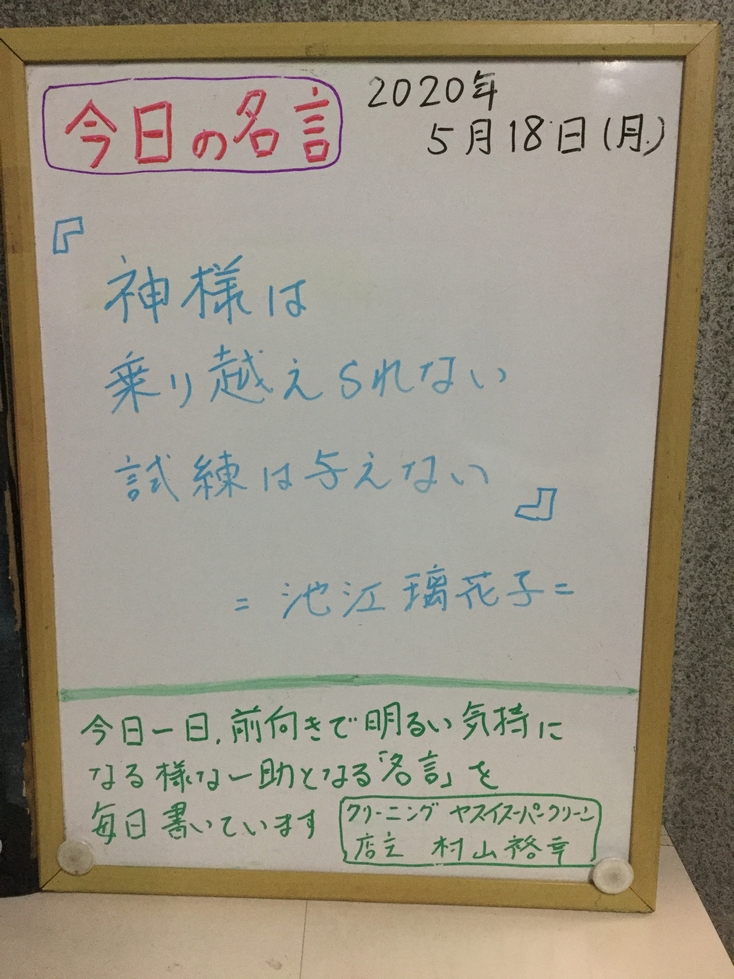 今日の名言
2020年
5月18日(月.)
『
神様は
乗り越えられない
試練は与えない
』
=池江璃花子=
今日一日,前向きで明るい気持に
なる様な一助となる「名言」を
毎日書いています
クリーニング ヤスイスーパークリーン
店主 村山裕幸